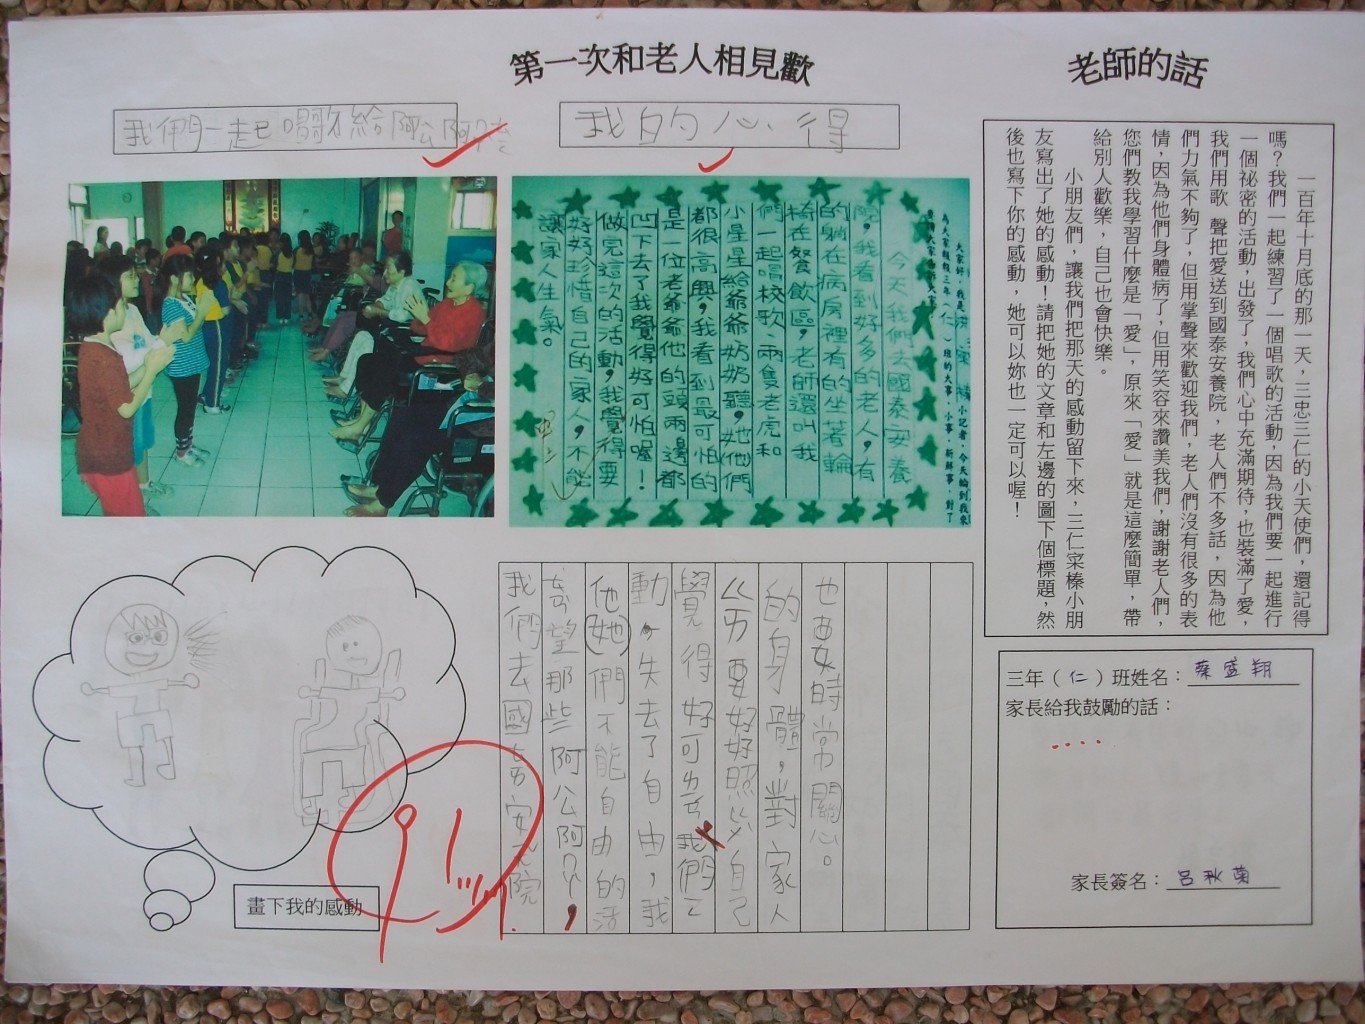 第一次和老人相見歡
老師的話
我們一起唱歌給阿公阿
我的心得
一百年十月底的那一天，三忠三仁的小天使們，還記得
嗎？我們一起練習了一個唱歌的活動，因為我們要一起進行
一個祕密的活動，出發了，我們心中充滿期待，也裝滿了愛，
我們用歌 聲把愛送到國泰安養院，老人們不多話，因為他
們力氣不夠了，但用掌聲來歡迎我們，老人們沒有很多的表
情，因為他們身體病了，但用笑容來讚美我們，謝謝老人們，
您們教我學習什麼是「愛」，原來「愛」就是這麼簡單，帶
給別人歡樂，自己也會快樂。
小朋友們，讓我們把那天的感動留下來，三仁寀榛小朋
友寫出了她的感動！請把她的文章和左邊的圖下個標題，然
後也寫下你的感動，她可以妳也一定可以喔！
大家好，我是
小記者，今天輪到我來
為大家報報三年（仁）班的大事、小事、新鮮事，對了
今天我們去國泰安養
院，我看到好多的老人，有
的躺在病房裡有的坐著輪
椅在餐飲區，老師還叫我
們一起唱校歌、兩隻老虎和
小星星給爺爺奶奶聽，她們
都很高興，我看到最可怕的
是一位老爺爺他的頭兩邊都
凹下去了我覺得好可怕喔！
做完這次的活動，我覺得要
好好珍惜自己的家人，不能
讓家人生氣。
我們去國ㄊㄞ安ㄤ院
希望那些阿公阿，
他(她)們不能自由的活
動，失去了自由，我
覺得好可ㄌㄧㄢ我們
ㄙㄞ要好好照ㄍㄨ自己
的身體，對家人
也要時常關心。
畫下我的感動
三年（仁）班姓名：蔡盛翔
家長給我鼓勵的話：
家長簽名：呂秋菊